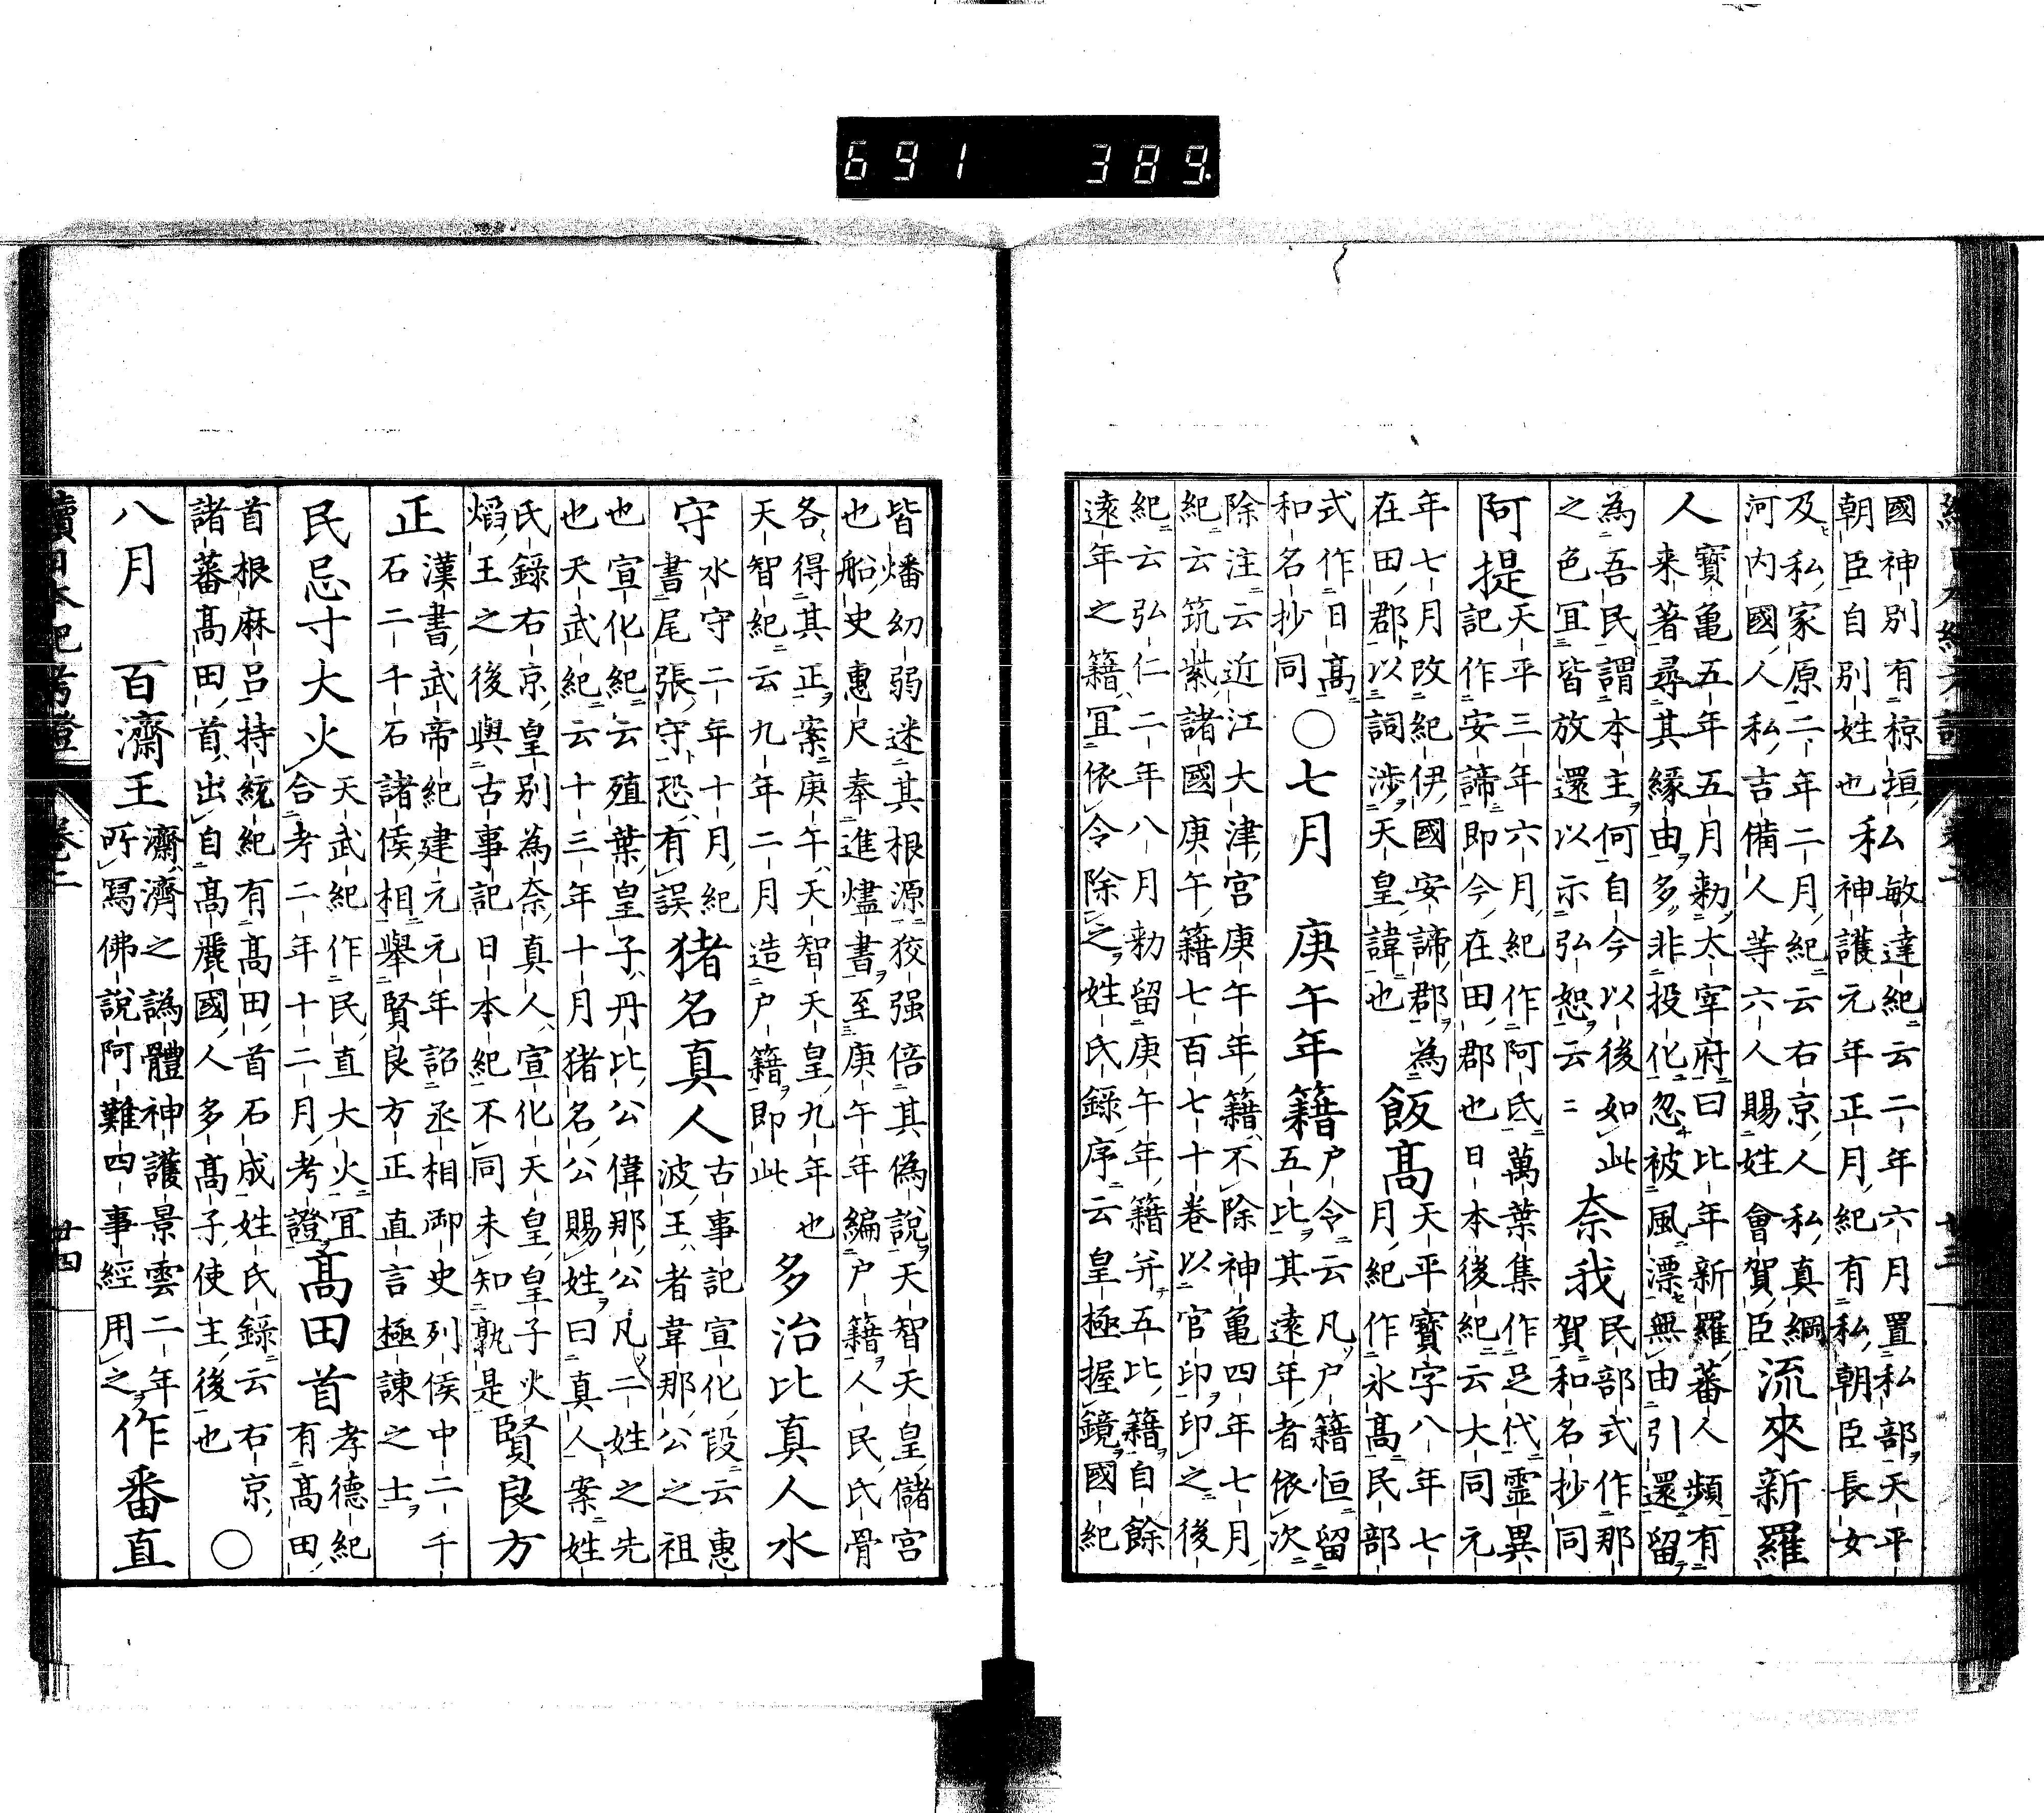 691 389.
國神別有椋垣私敏達紀云二年六月置私部天平
朝臣自別姓也私神護元年正月紀有私朝臣長女
及私家原二年二月紀云右京人私真綱
河内國人私吉備人等六人賜姓會賀臣流來新羅
人寶亀五年五月勅太宰府曰比年新羅蕃人頻有
来著尋其緣由多非投化忽被風漂無由引還留
為吾民謂本主何自今以後如此奈我民部式作那
之色宜皆放還以示弘恕云〻賀和名抄同
阿提天平三年六月紀作阿氐萬葉集作足代霊異
記作安諦即今在田郡也日本後紀云大同元
年七月改紀伊國安諦郡為飯髙天平寳字八年七
在田郡以詞涉天皇諱也月紀作氷髙民部
式作日髙〇七月庚午年籍戸令云凡戸籍恒留
和名抄同五比其遠年者依次
除注云近江大津宮庚午年籍不除神亀四年七月
紀云筑紫諸國庚午籍七百七十巻以官印印之後
紀云弘仁二年八月勅留庚午年籍并五比籍自餘
遠年之籍宜依令除之姓氏錄序云皇極握鏡國紀
皆燔幼弱迷其根源狡强倍其偽說天智天皇儲宮
也船史惠尺奉進燼書至庚午年編戸籍人民氏骨
各得其正案庚午天智天皇九年也多治比真人水
天智紀云九年二月造戸籍即此
守水守二年十月紀猪名真人古事記宣化段云惠
書尾張守恐有誤波王者韋那公之祖
也宣化紀云殖葉皇子丹比公偉那公凡二姓之先
也天武紀云十三年十月猪名公賜姓曰真人案姓
氏錄右京皇別為奈真人宣化天皇皇子火
焰王之後與古事記日本紀不同未知孰是賢良方
正漢書武帝紀建元元年詔丞相御史列侯中二千
石二千石諸侯相舉賢良方正直言極諫之士
民忌寸大火天武紀作民直大火宜髙田首孝德紀
合考二年十二月考證有髙田
首根麻呂持統紀有髙田首石成姓氏錄云右京
諸蕃髙田首出自髙麗國人多髙子使主後也〇
八月百濟王濟濟之譌體神護景雲二年作番直
所冩佛說阿難四事經用之
續日本紀考證 卷二 廿四